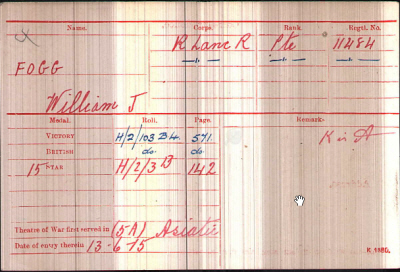 Name. Corps. Rank. Regtl. No.
FOGG R Lanc R Pte 11484
William J
Medal. Roll. Page. Remarks
VICTORY H/2/103 B4. 571. K in A
BRITISH do. do.
15 STAR H/2/3 B 142
Theatre of War first served in (5A) Asiatic
Date of entry therein 13-6-15
K 1380.